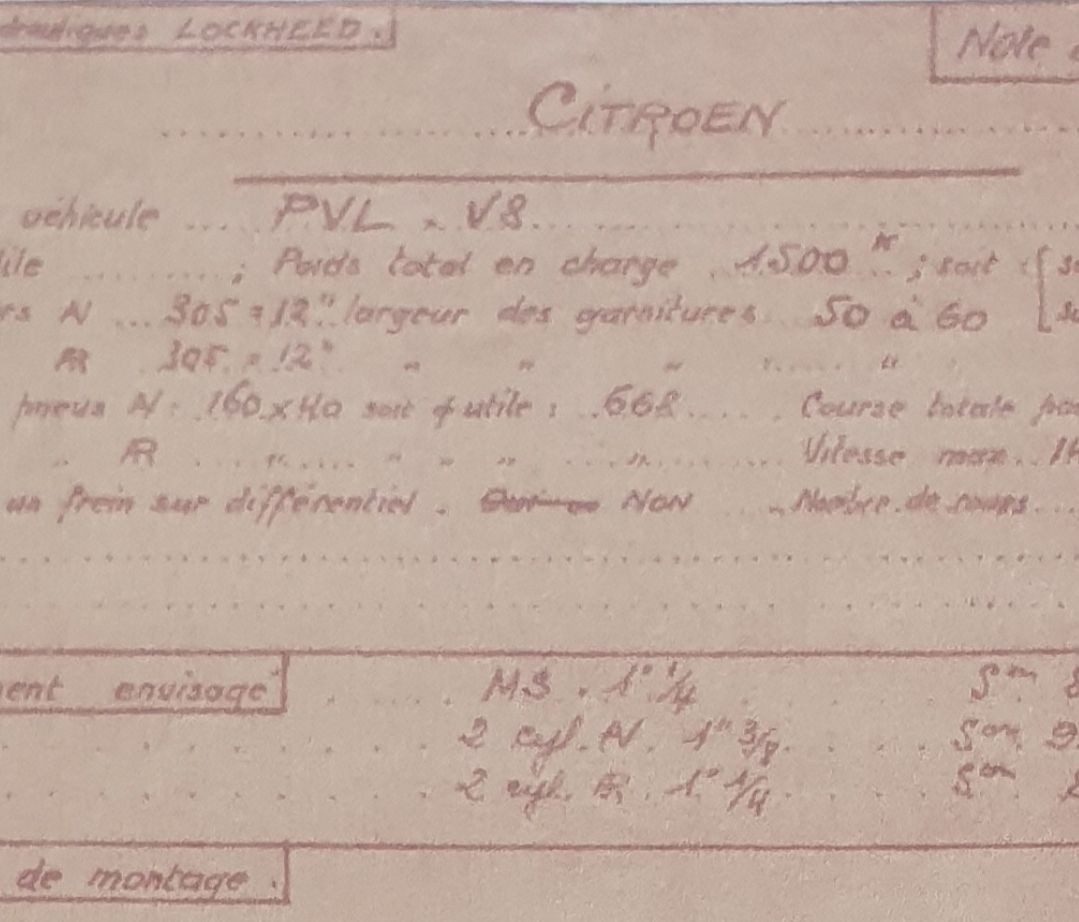 drauliques LOCKHEED.
Note
CITROEN
véhicule .... PVL - V8
ile ........ ; Poids total en charge . 1.500 K ; soit
rs AV ... 305 = 12" largeur des garnitures 50 à 60
AR 305 = 12" " " " "
pneus AV : 160 x 40 soit ϕ utile : 668 .... Course totale
" AR .... " .... " " " .... " .... Vitesse max..
un frein sur différentiel . NON .. Nombre de roues ...
ment envisagé
MS . 1" 1/4 S on
2 cyl. AV. 1" 3/8 S on
2 cyl. AR. 1" 1/4 S on
de montage .